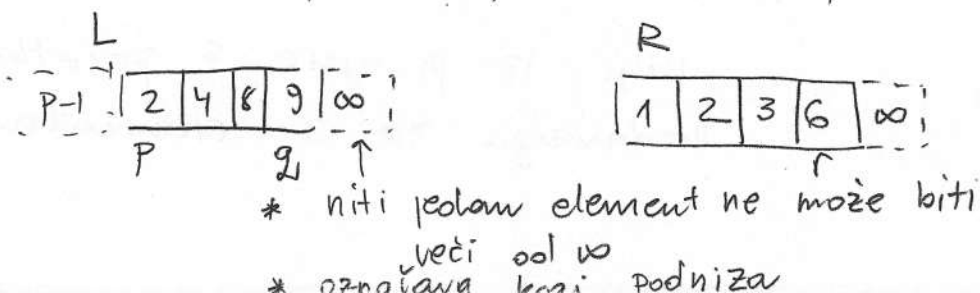 L R
P-1 2 4 8 9 ∞ 1 2 3 6 ∞
p q r
* niti jedan element ne može biti
veći od ∞
* označava kraj podniza